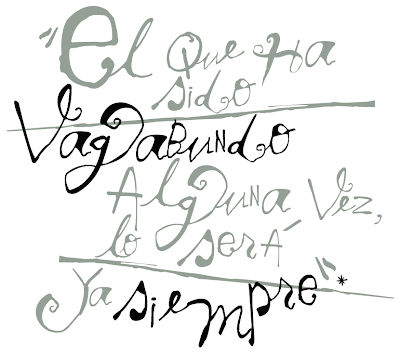 "El Que Ha
sido
VagaBundo
AlgUna Vez,
lo será
Ya siempre"*